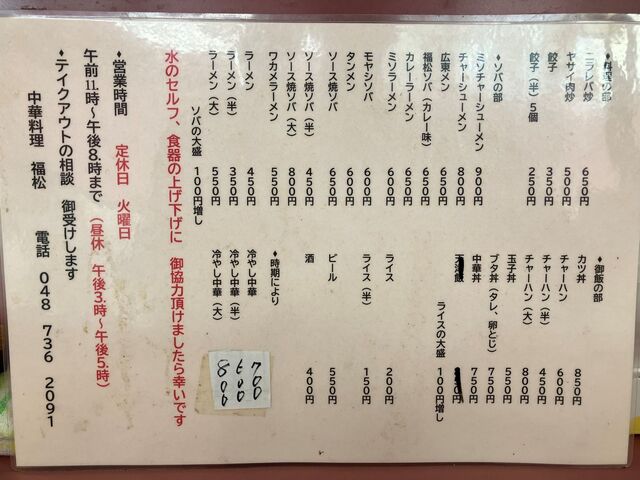 ♦料理の部
ニラレバ炒 650円
ヤサイ肉炒 500円
餃子 350円
餃子(半)5個 250円
♦ソバの部
ミソチャーシューメン 900円
チャーシューメン 800円
広東メン 650円
福松ソバ(カレー味) 650円
カレーラーメン 650円
ミソラーメン 600円
モヤシソバ 600円
タンメン 600円
ソース焼ソバ 650円
ソース焼ソバ(半) 450円
ソース焼ソバ(大) 800円
ワカメラーメン 550円
ラーメン 450円
ラーメン(半) 350円
ラーメン(大) 550円
ソバの大盛 100円増し
♦御飯の部
カツ丼 850円
チャーハン 600円
チャーハン(半) 450円
チャーハン(大) 800円
玉子丼 550円
ブタ丼(タレ、卵とじ) 750円
中華丼 750円
ライスの大盛 100円増し
ライス 200円
ライス(半) 150円
ビール 550円
酒 400円
♦時期により
冷やし中華 700
冷やし中華(半) 600
冷やし中華(大) 800
水のセルフ、食器の上げ下げに 御協力頂けましたら幸いです
♦営業時間 定休日 火曜日
午前11時~午後8時まで(昼休 午後3時~午後5時)
♦テイクアウトの相談 御受けします
中華料理 福松 電話 048 736 2091